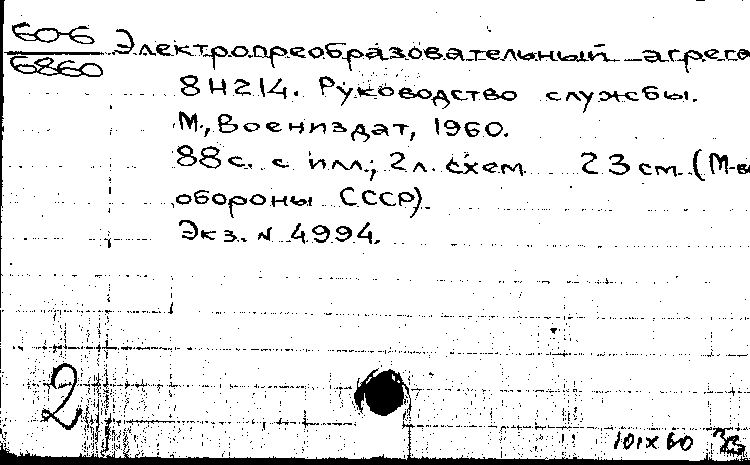 60-6
6860
Электропреобразовательный агрега
8Н214. Руководство службы.
М., Воениздат, 1960.
88 с. с илл.; 2 л. схем 23 см. (М-во
обороны СССР).
Экз. № 4994.
2
101х60